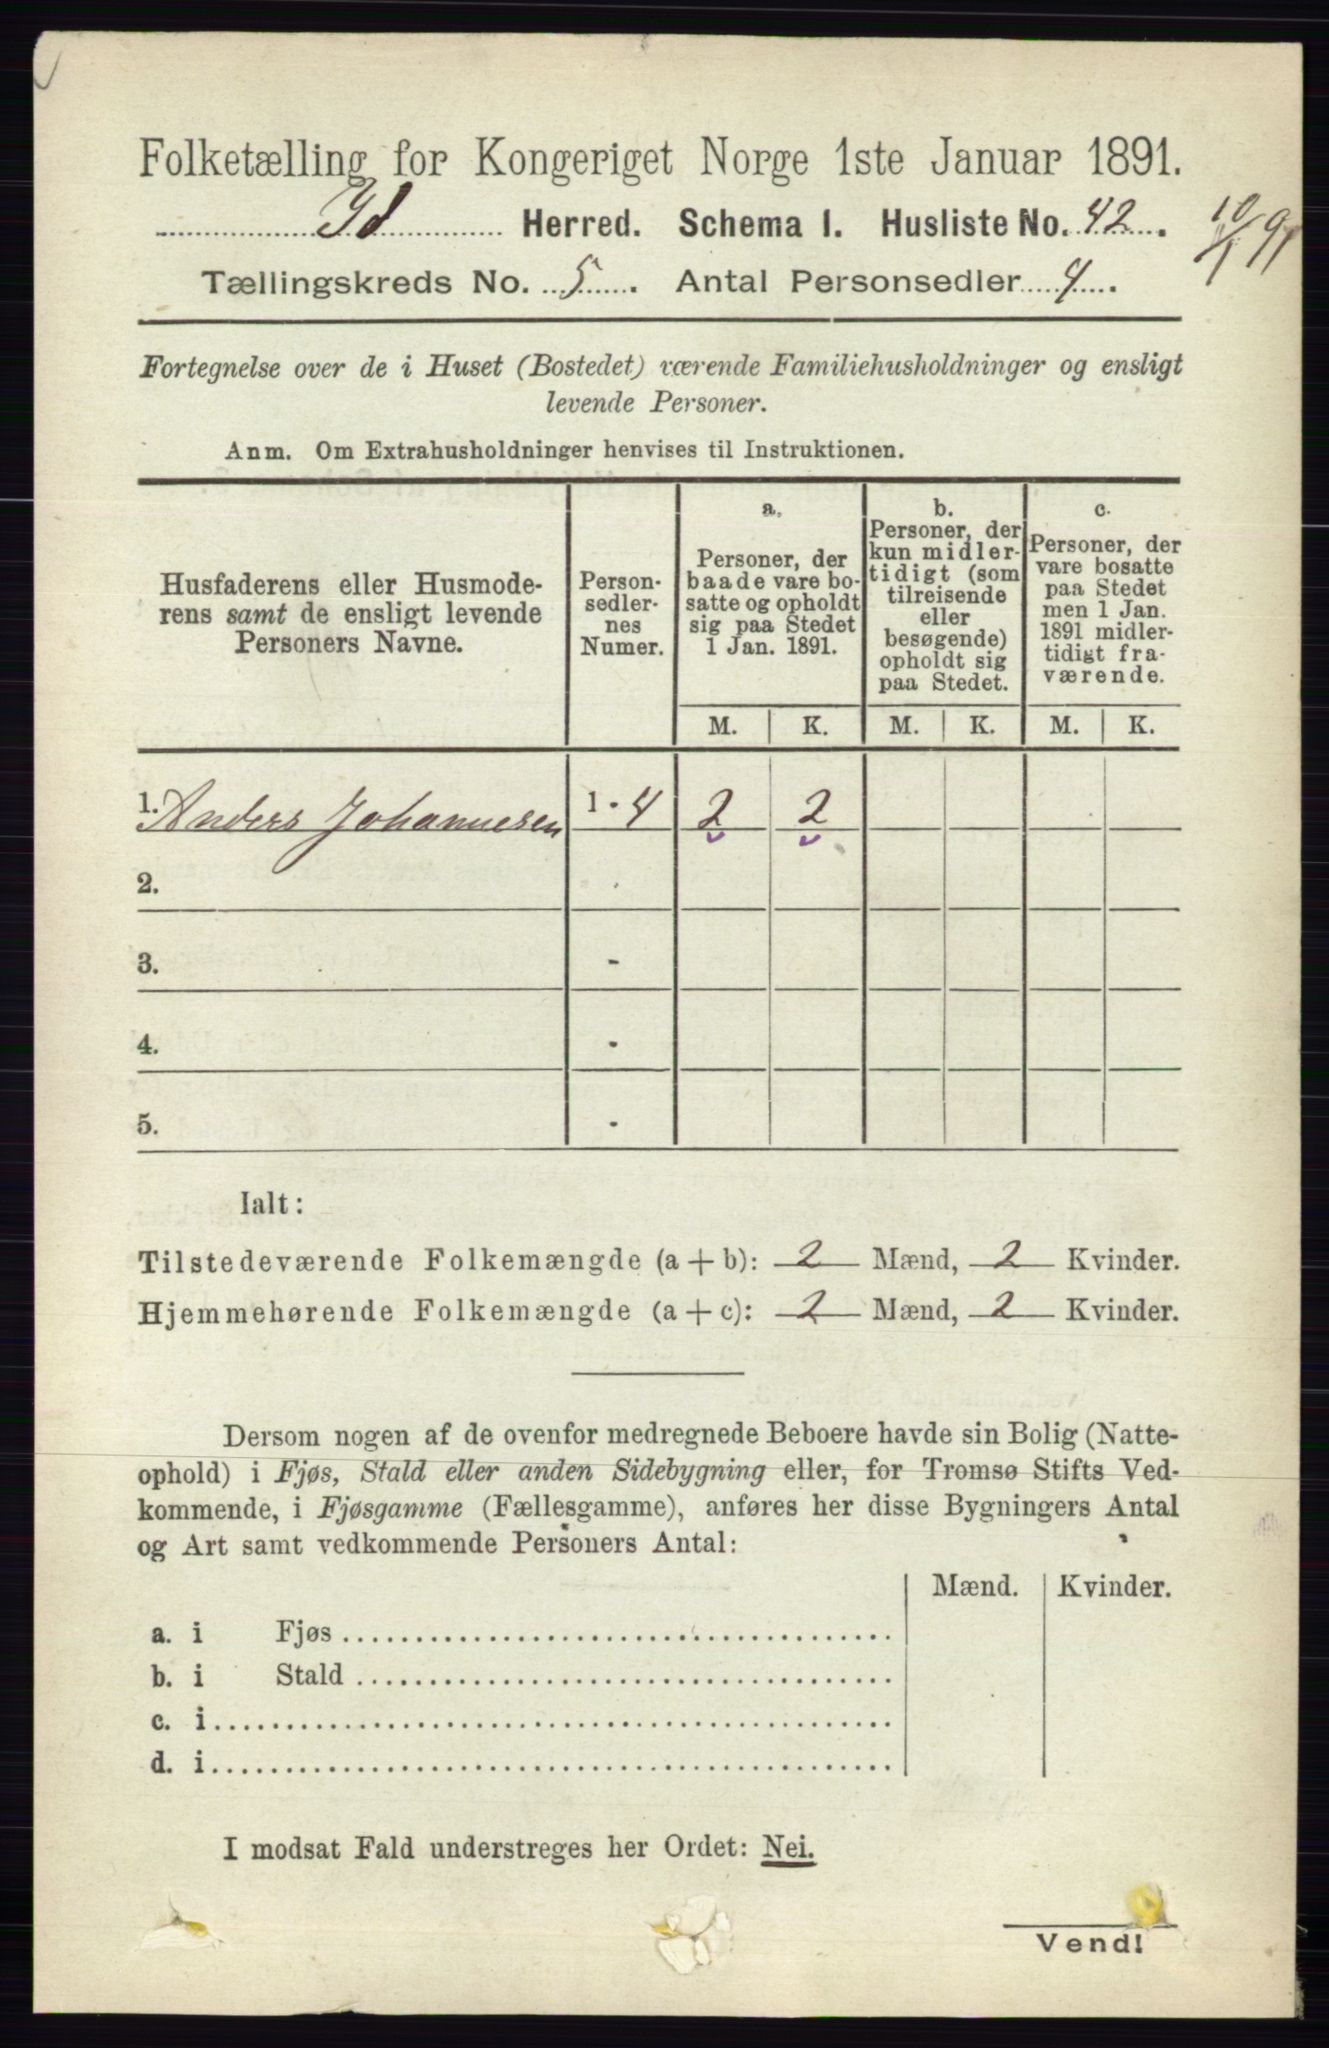 Folketælling for Kongeriget Norge 1ste Januar 1891.
Id Herred. Schema I. Husliste No. 42.
10/1 91
Tællingskreds No. 5. Antal Personsedler 4.
Fortegnelse over de i Huset (Bostedet) værende Familiehusholdninger og ensligt
levende Personer.
Anm. Om Extrahusholdninger henvises til Instruktionen.
Husfaderens eller Husmode-
rens samt de ensligt levende
Personers Navne.
Person-
sedler-
nes
Numer.
a.
Personer, der
baade vare bo-
satte og opholdt
sig paa Stedet
1 Jan. 1891.
b.
Personer, der
kun midler-
tidigt (som
tilreisende
eller
besøgende)
opholdt sig
paa Stedet.
c.
Personer, der
vare bosatte
paa Stedet
men 1 Jan.
1891 midler-
tidigt fra-
værende.
M. K. M. K. M. K.
1. Anders Johannesen 1 - 4 2 2
2.
3. -
4. -
5. -
Ialt:
Tilstedeværende Folkemængde (a + b): 2 Mænd, 2 Kvinder.
Hjemmehørende Folkemængde (a + c): 2 Mænd, 2 Kvinder.
Dersom nogen af de ovenfor medregnede Beboere havde sin Bolig (Natte-
ophold) i Fjøs, Stald eller anden Sidebygning eller, for Tromsø Stifts Ved-
kommende, i Fjøsgamme (Fællesgamme), anføres her disse Bygningers Antal
og Art samt vedkommende Personers Antal:
Mænd. Kvinder.
a. i Fjøs
b. i Stald
c. i
d. i
I modsat Fald understreges her Ordet: Nei.
Vend!